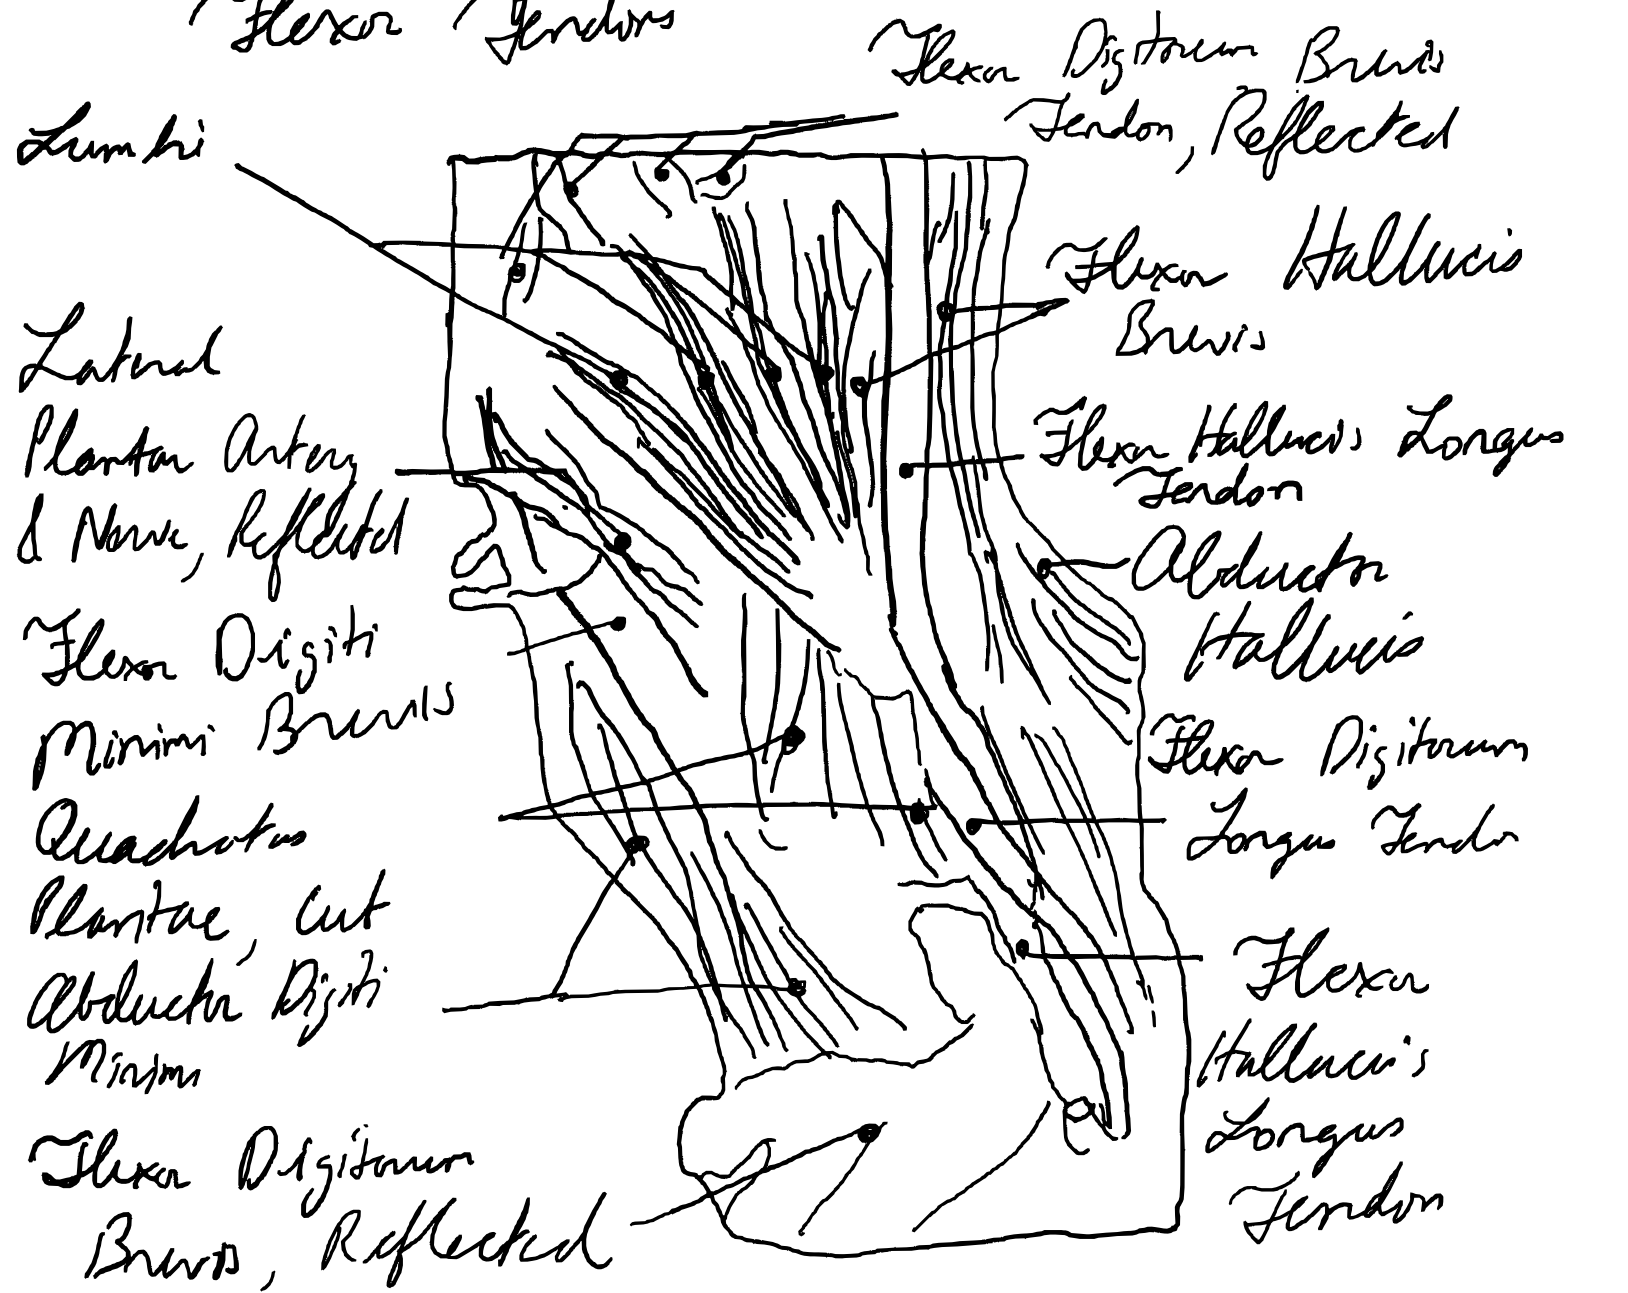 Flexor Tendons
Flexor Digitorum Brevis
Tendon, Reflected
Lumbri
Flexor Hallucis
Brevis
Lateral
Plantar Artery
& Nerve, Reflected
Flexor Hallucis Longus
Tendon
Abductor
Hallucis
Flexor Digiti
Minimi Brevis
Flexor Digitorum
Longus Tendon
Quadratus
Plantae, Cut
Abductor Digiti
Minimi
Flexor
Hallucis
Longus
Tendon
Flexor Digitorum
Brevis, Reflected